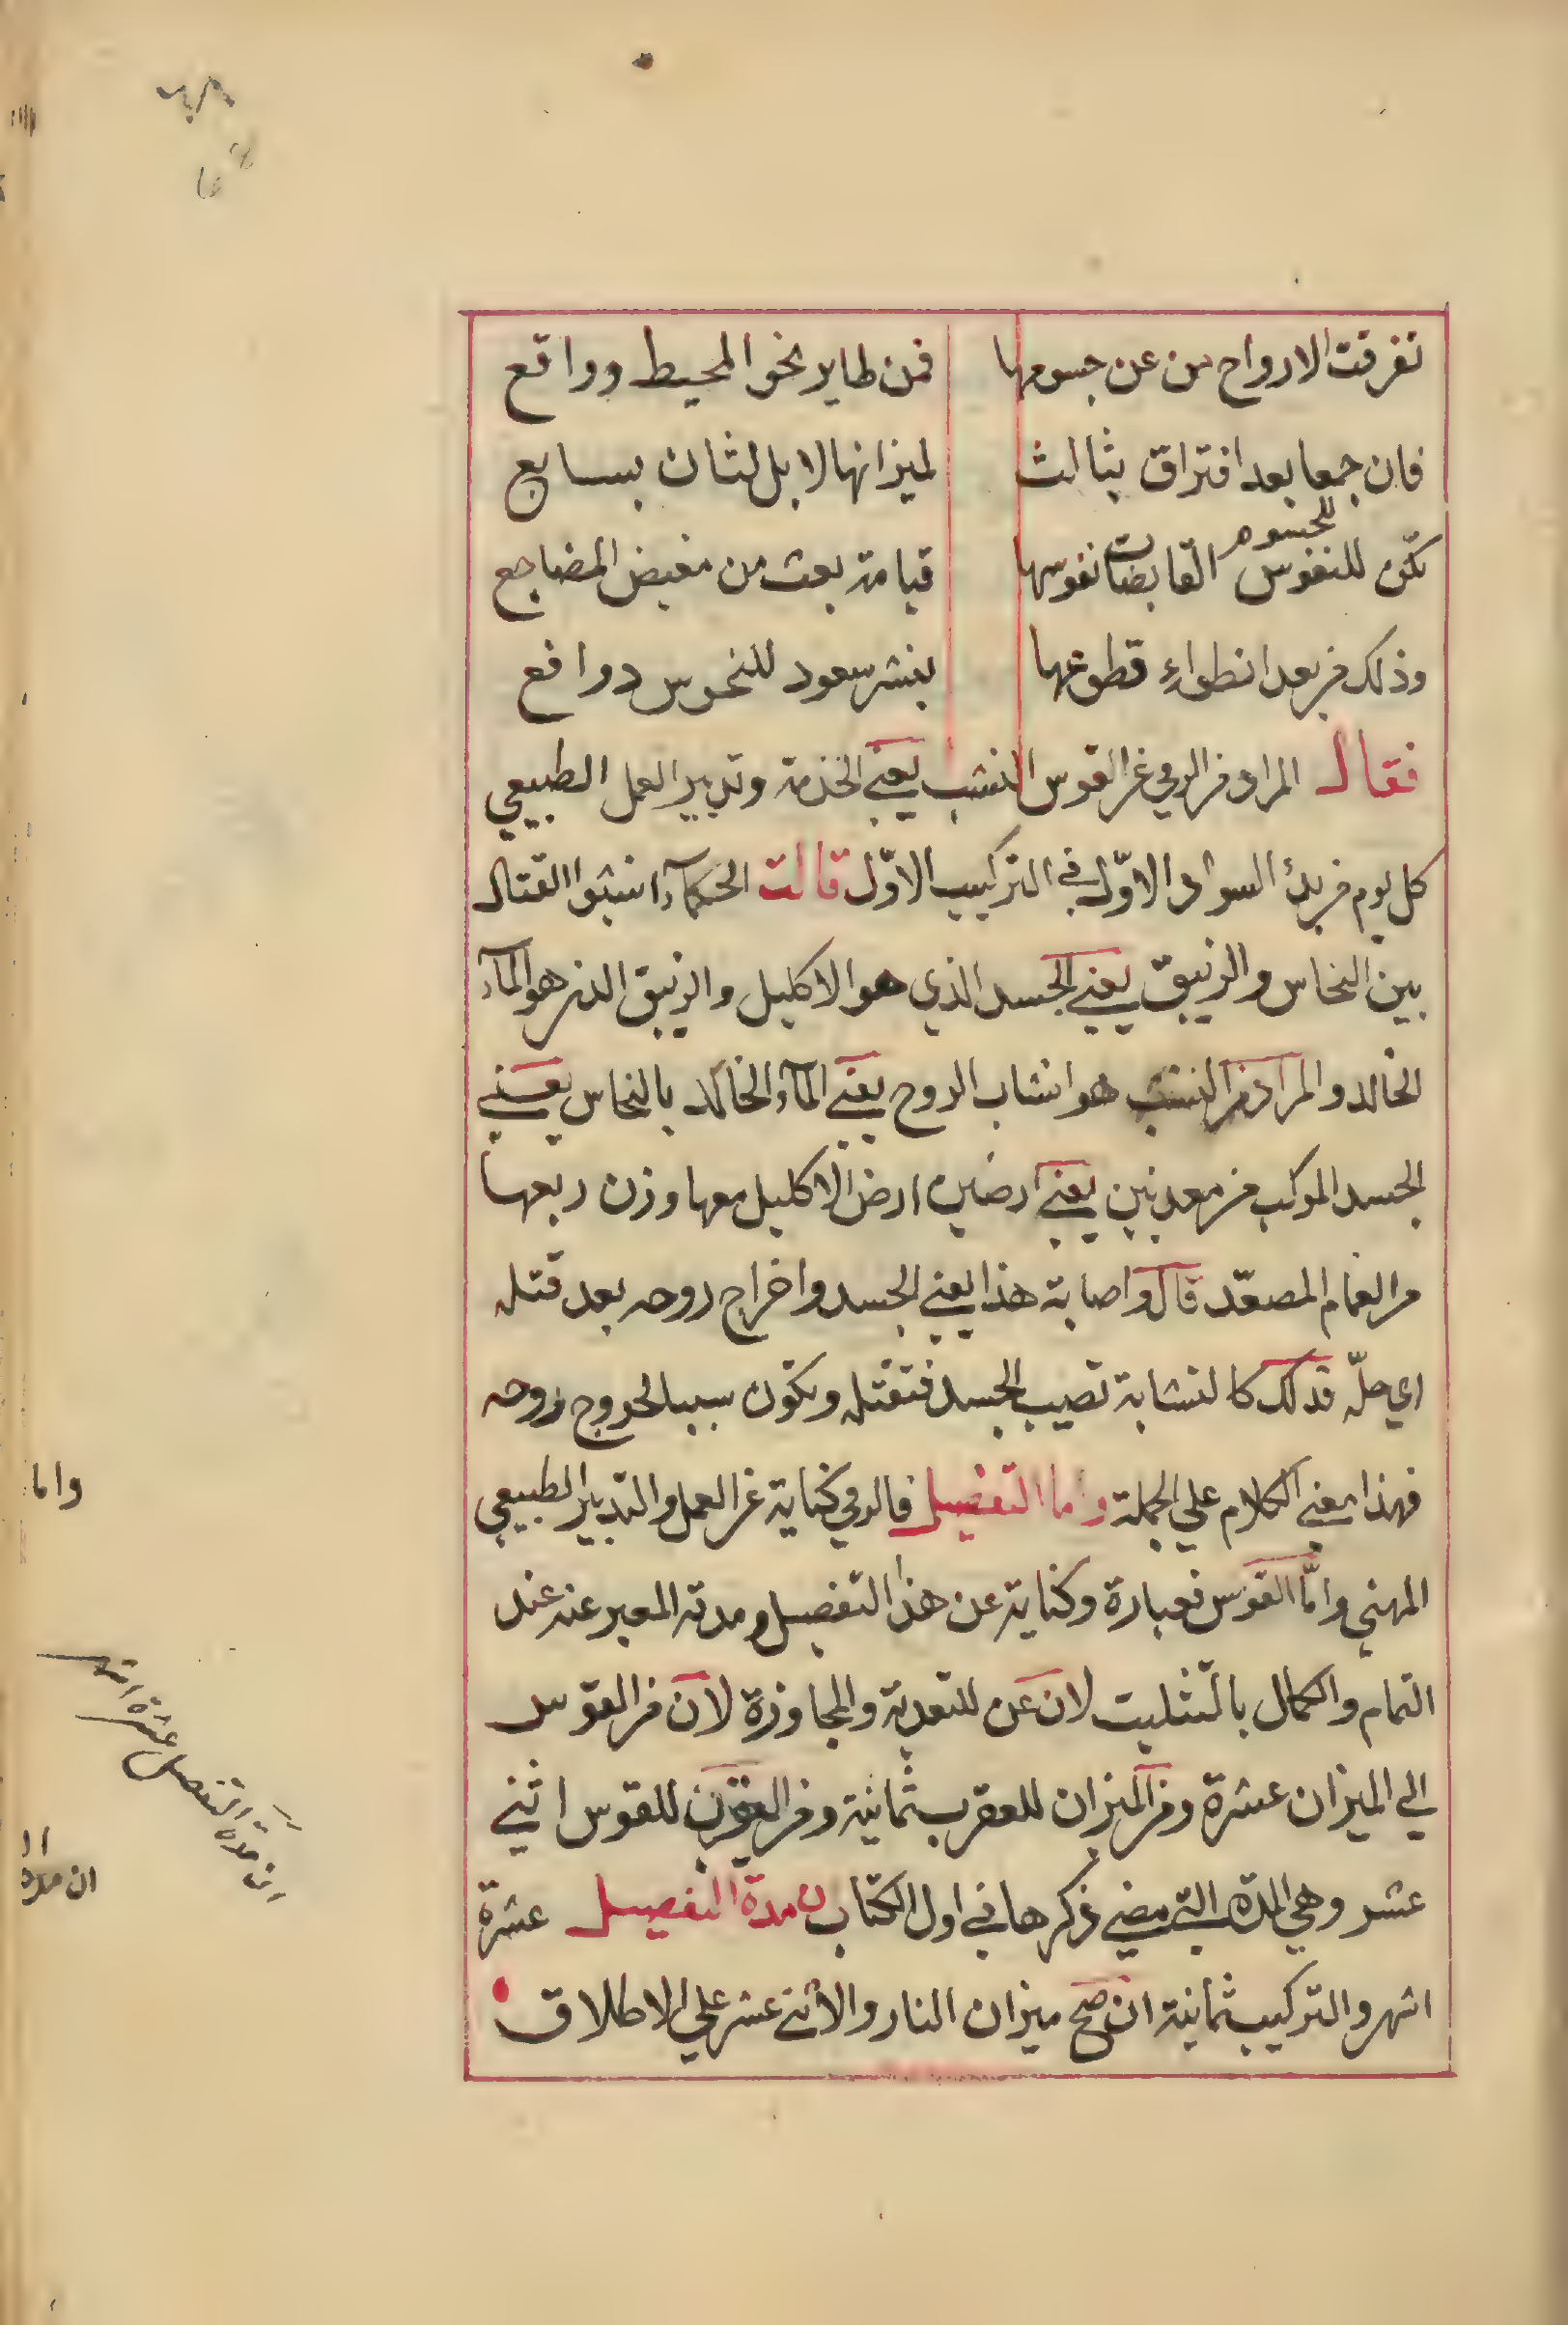 تفرقت الارواح من عن جسومها فمن طاير نحو المحيط وواقع
فان جمعا بعد افتراق بثالث لميزانها لا بل لثان بسابع
للجسوم
تكن للنفوس القابضات نفوسها قيامة بعث من مغيض المضاجع
وذلك من بعد انطواء قطوعها بنشر سعود للنحوس دوافع
فقال المراد من الرمي عن القوس النشب يعني الخدمة وتدبير العمل الطبيعي
كل يوم من بدئ السواد الاوّل في التركيب الاوّل قالت الحكمآء انشبوا القتال
بين النحاس والزيبق يعني الجسد الذي هو الاكليل والزيبق الذي هو المآء
الخالد والمراد من النشب هو انشاب الروح يعني المآء الخالد بالنحاس يعني
الجسد المركب من معدنين يعني ارضين ارض الاكليل معها وزن ربعها
من الغمام المصعّد قال واصابة هذا يعني الجسد واخراج روحه بعد قتله
اي حلّه فذلك كالنشابة تصيب الجسد فتقتله وتكون سببا لخروج روحه
فهذا معني الكلام علي الجملة واما التفصيل فالرمي كناية عن العمل والتدبير الطبيعي
المهني وامّا القوس فعبارة وكناية عن هذا التفصيل ومدته المعبر عنه عند
التمام والكمال بالتثليث لان عن للتعدية والمجاوزة لان من القوس
الي الميزان عشرة ومن الميزان للعقرب ثمانية ومن العقرب للقوس اثني
عشر وهي المدة التي مضي ذكرها في اول الكتاب ان مدة التفصيل عشرة
اشهر والتركيب ثمانية ان صح ميزان النار والاثني عشر علي الاطلاق
واما
ان مدة التفصيل عشرة اشهر
ان مدة